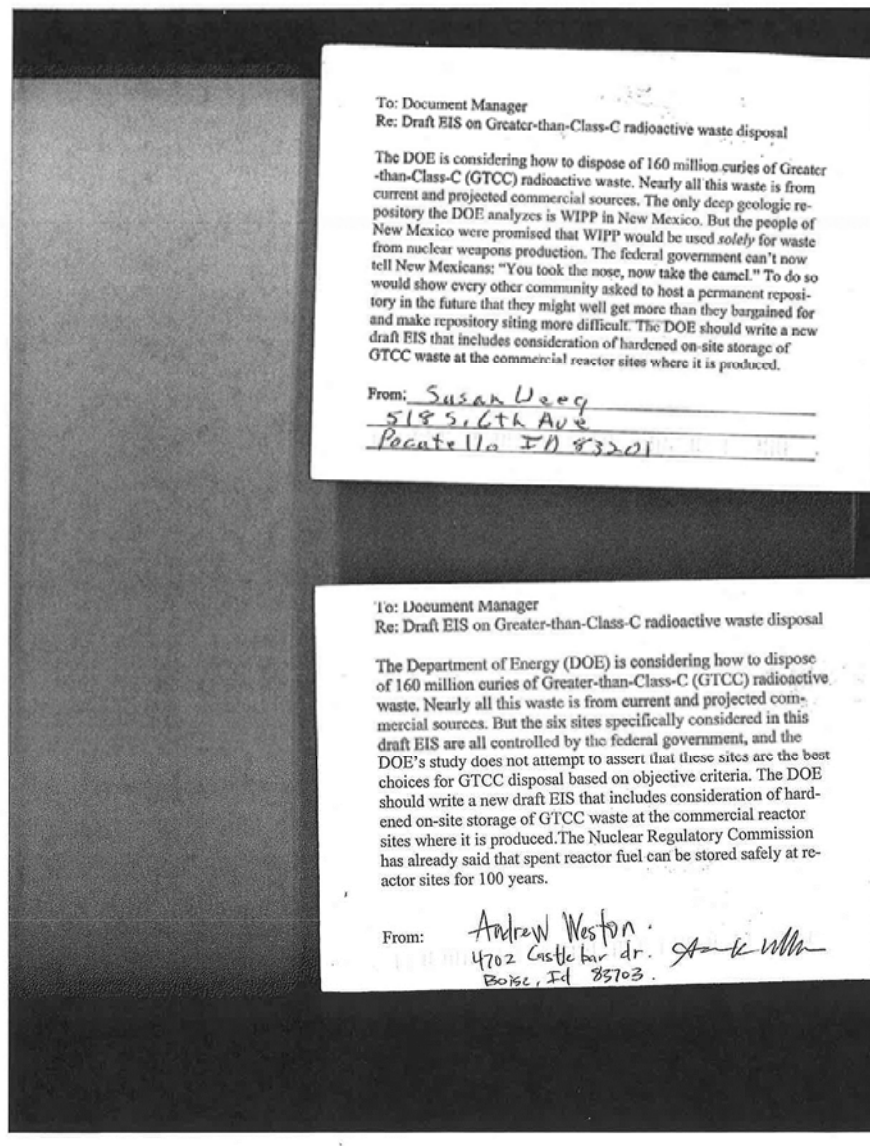 To: Document Manager
Re: Draft EIS on Greater-than-Class-C radioactive waste disposal
The DOE is considering how to dispose of 160 million curies of Greater
-than-Class-C (GTCC) radioactive waste. Nearly all this waste is from
current and projected commercial sources. The only deep geologic re-
pository the DOE analyzes is WIPP in New Mexico. But the people of
New Mexico were promised that WIPP would be used solely for waste
from nuclear weapons production. The federal government can't now
tell New Mexicans: "You took the nose, now take the camel." To do so
would show every other community asked to host a permanent reposi-
tory in the future that they might well get more than they bargained for
and make repository siting more difficult. The DOE should write a new
draft EIS that includes consideration of hardened on-site storage of
GTCC waste at the commercial reactor sites where it is produced.
From: Susan
518 S. 6th Ave
Pocatello ID 83201
To: Document Manager
Re: Draft EIS on Greater-than-Class-C radioactive waste disposal
The Department of Energy (DOE) is considering how to dispose
of 160 million curies of Greater-than-Class-C (GTCC) radioactive
waste. Nearly all this waste is from current and projected com-
mercial sources. But the six sites specifically considered in this
draft EIS are all controlled by the federal government, and the
DOE's study does not attempt to assert that these sites are the best
choices for GTCC disposal based on objective criteria. The DOE
should write a new draft EIS that includes consideration of hard-
ened on-site storage of GTCC waste at the commercial reactor
sites where it is produced.The Nuclear Regulatory Commission
has already said that spent reactor fuel can be stored safely at re-
actor sites for 100 years.
From: Andrew Weston.
4702 Castlebar dr.
Boise, Id 83703.